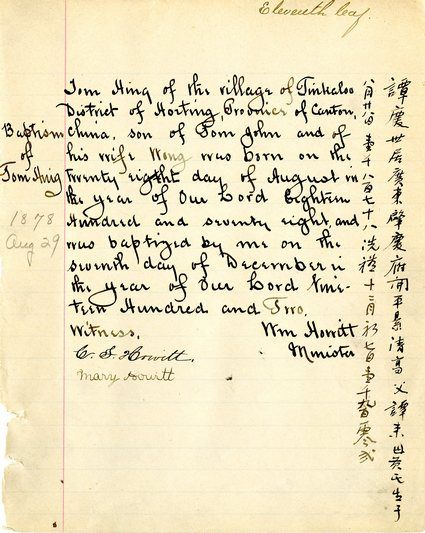 Eleventh leaf.
Baptism
of
Tom Hing
1878
Aug 29
Tom Hing of the village of Tinkaloo
District of Horting, Province of Canton,
China, son of Tom John and of
his wife Wong was born on the
twenty eight day of August in
the year of Our Lord Eighteen
Hundred and seventy eight, and
was baptized by me on the
seventh day of December in
the year of Our Lord Nine-
teen Hundred and Two.
Witness, Wm Howitt
Minister
C. S. Howitt.
Mary Howitt
譚慶世居廣東肇慶府開平县清高父譚來氏生于
八月廿日壹千八百七十八洗禮十二月初七日壹千九百零弍